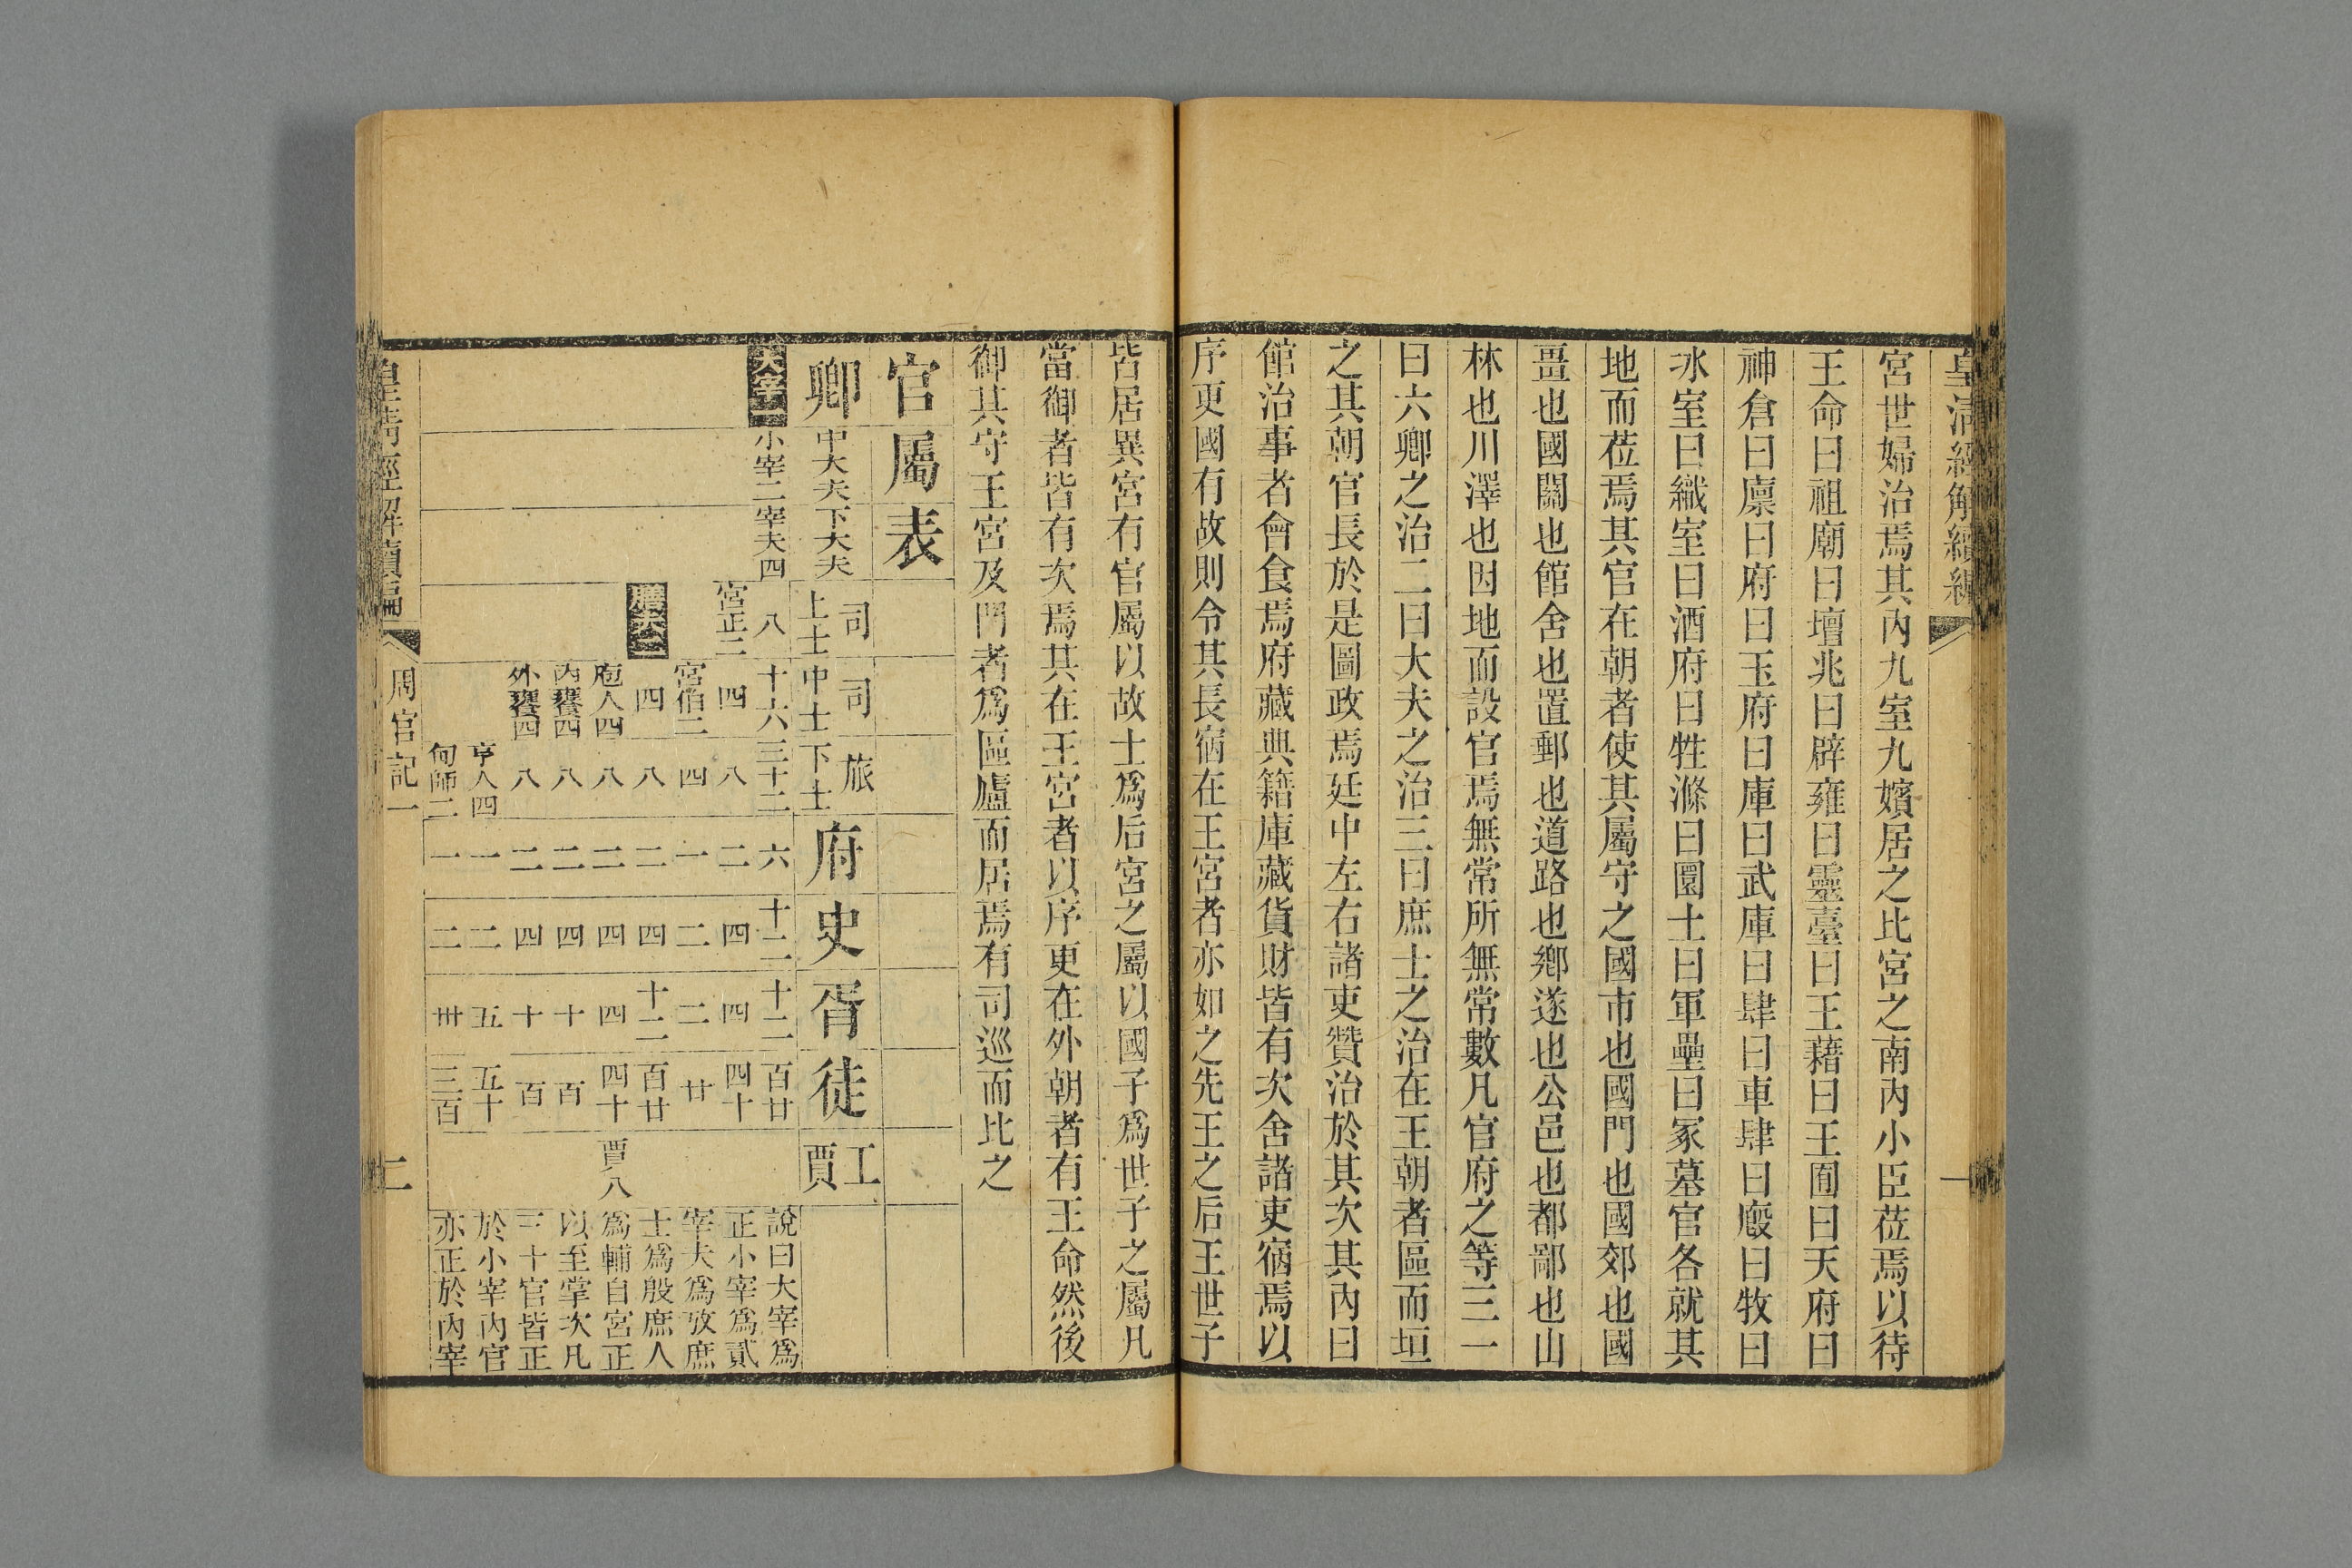 皇清經解續編
一
宮世婦治焉其內九室九嬪居之比宮之南內小臣莅焉以待
王命曰祖廟曰壇兆曰辟雍曰靈臺曰王藉曰王囿曰天府曰
神倉曰廩曰府曰玉府曰庫曰武庫曰肆曰車肆曰廏曰牧曰
冰室曰織室曰酒府曰牲滌曰圜土曰軍壘曰冢墓官各就其
地而莅焉其官在朝者使其屬守之國市也國門也國郊也國
畺也國關也館舍也置郵也道路也鄉遂也公邑也都鄙也山
林也川澤也因地而設官焉無常所無常數凡官府之等三一
曰六卿之治二曰大夫之治三曰庶士之治在王朝者區而垣
之其朝官長於是圖政焉廷中左右諸吏贊治於其次其內曰
館治事者會食焉府藏典籍庫藏貨財皆有次舍諸吏宿焉以
序更國有故則令其長宿在王宮者亦如之先王之后王世子
皆居異宮有官屬以故士爲后宮之屬以國子爲世子之屬凡
當御者皆有次焉其在王宮者以序更在外朝者有王命然後
御其守王宮及門者爲區廬而居焉有司巡而比之
官屬表
卿 中大夫 下大夫 上士司 中士司 下士旅 府 史 胥 徒 工賈
大宰一 小宰二 宰夫四 八 十六 三十二 六 十二 十二 百廿 說曰大宰爲
宮正二 四 八 二 四 四 四十 正小宰爲貳
宮伯二 四 一 二 二 廿 宰夫爲攷庶
膳夫二 四 八 二 四 十二 百廿 士爲殷庶人
庖人四 八 二 四 四 四十 賈八 爲輔自宮正
內饔四 八 二 四 十 百 以至掌次凡
外饔四 八 二 四 十 百 三十官皆正
亨人四 一 二 五 五十 於小宰內官
甸師二 一 二 卅 三百 亦正於內宰
皇清經解續編
周官記一
二